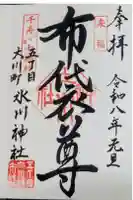 奉拝
令和八年元旦
来福
布袋尊
千寿七
五丁目
大川町
氷川神社